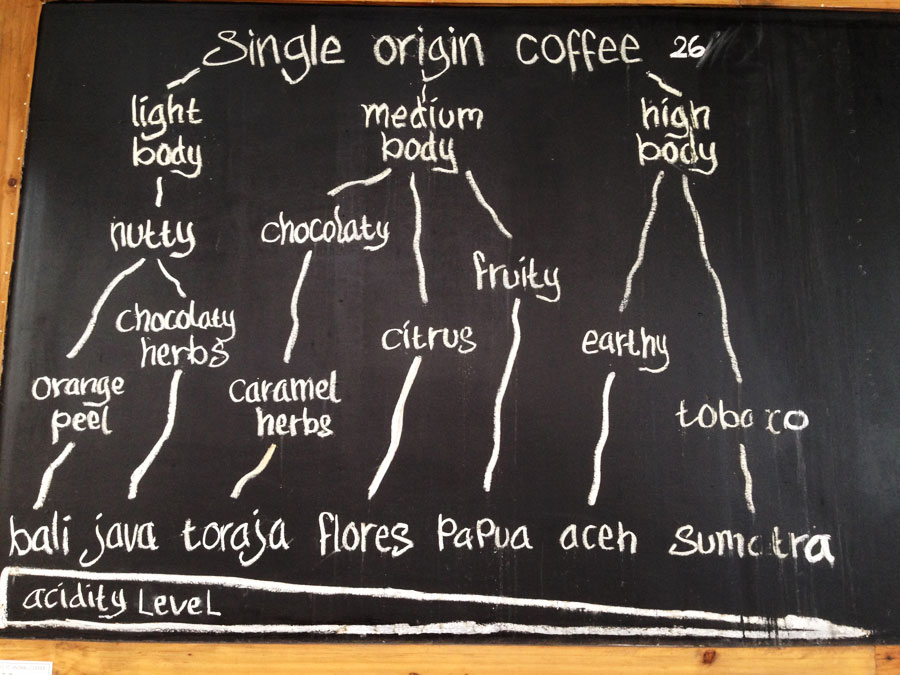 Single origin coffee 26
light body
medium body
high body
nutty
chocolaty
fruity
chocolaty herbs
citrus
earthy
orange peel
caramel herbs
tobacco
bali java toraja flores papua aceh sumatra
acidity level